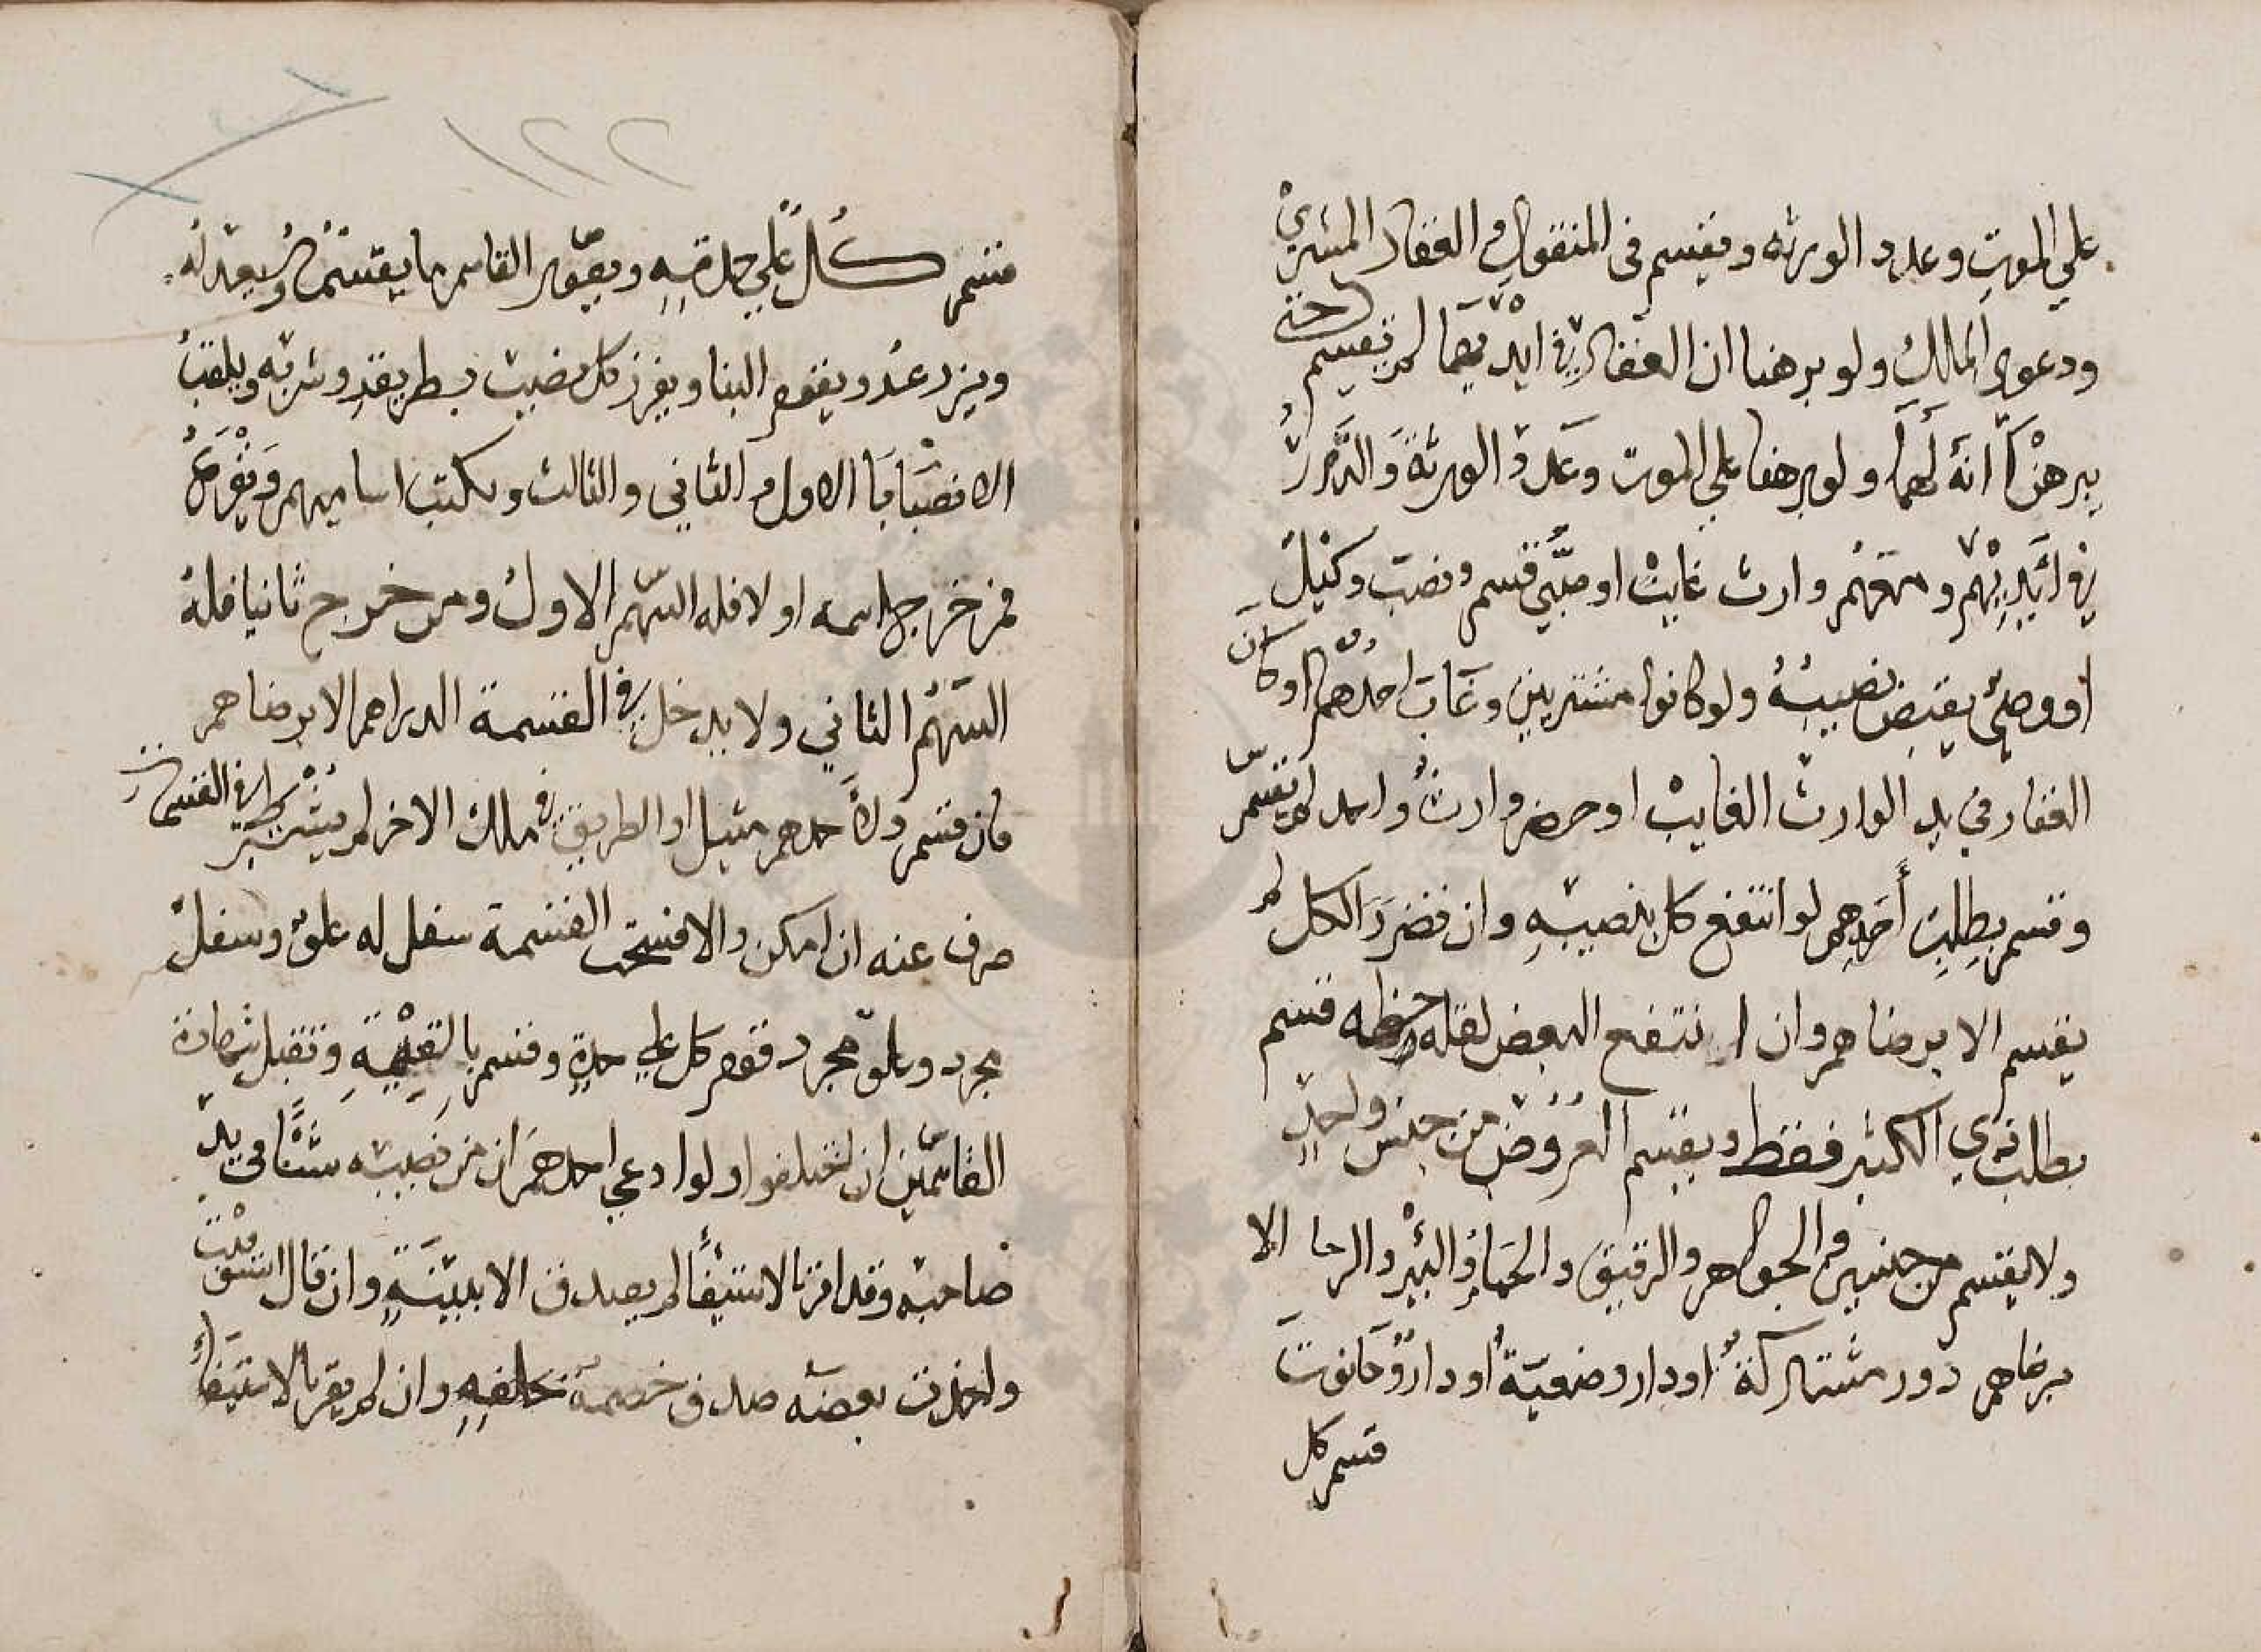 علي الموت وعدد الورثه ويقسم في المنقول والعقار المشتري
ودعوي الملك ولو برهنا ان العقار في ايديهما لم تقسم حتي
يبرهنا انه لهما ولو برهنا علي الموت وعدد الورثة والدار
في ايديهم ومعهم وارث غايب او صبي قسم ونصب وكيل
او وصي يقبض نصيبه ولو كانوا مشتريين وغاب احدهم او كان
العقار في يد الوارث الغايب او حضر وارث واحد لم تقسم
وقسم بطلب أحدهم لو انتفع كل بنصيبه وان تضرر الكل لم
يقسم الا برضاهم وان انتفع البعض لقله حظه قسم
بطلب ذي الكثير فقط ويقسم العروض من جنس واحد
ولا يقسم من جنسين والجواهر والرقيق والحمام والبئر والرحا الا
برضاهم دور مشتركة او دار وضعية أو دار وحانوت
قسم كل
١٢٢
قسم كل علي حدته ويصور القاسم ما يقسمه ويعدله
ويزرعه ويقوم البنا ويفرز كل نصيب بطريقه وشربه ويلقب
الانصبا با الاول والثاني والثالث ويكتب اساميهم ويقرع
فمن خرج اسمه اولا فله السهم الاول ومن خرج ثانيا فله
السهم الثاني ولا يدخل في القسمة الدراهم الا برضاهم
فان قسم ولاحدهم مسيل او الطريق في ملك الاخر لم يشترط في القسمة
صرف عنه ان امكن والا فسخت القسمة سفل له علو وسفل
مجرد وعلو مجرد قوم كل علي حدة وقسم بالقيمة وتقبل شهادة
القاسمين ان اختلفوا ولو ادعي احدهم ان من نصيبه شئا في يد
صاحبه وقد اقر بالاستيفا لم يصدق الا ببينة وان قال استوفيت
واخذت بعضه صدق خصمه بحلفه وان لم يقر بالاستيفاء